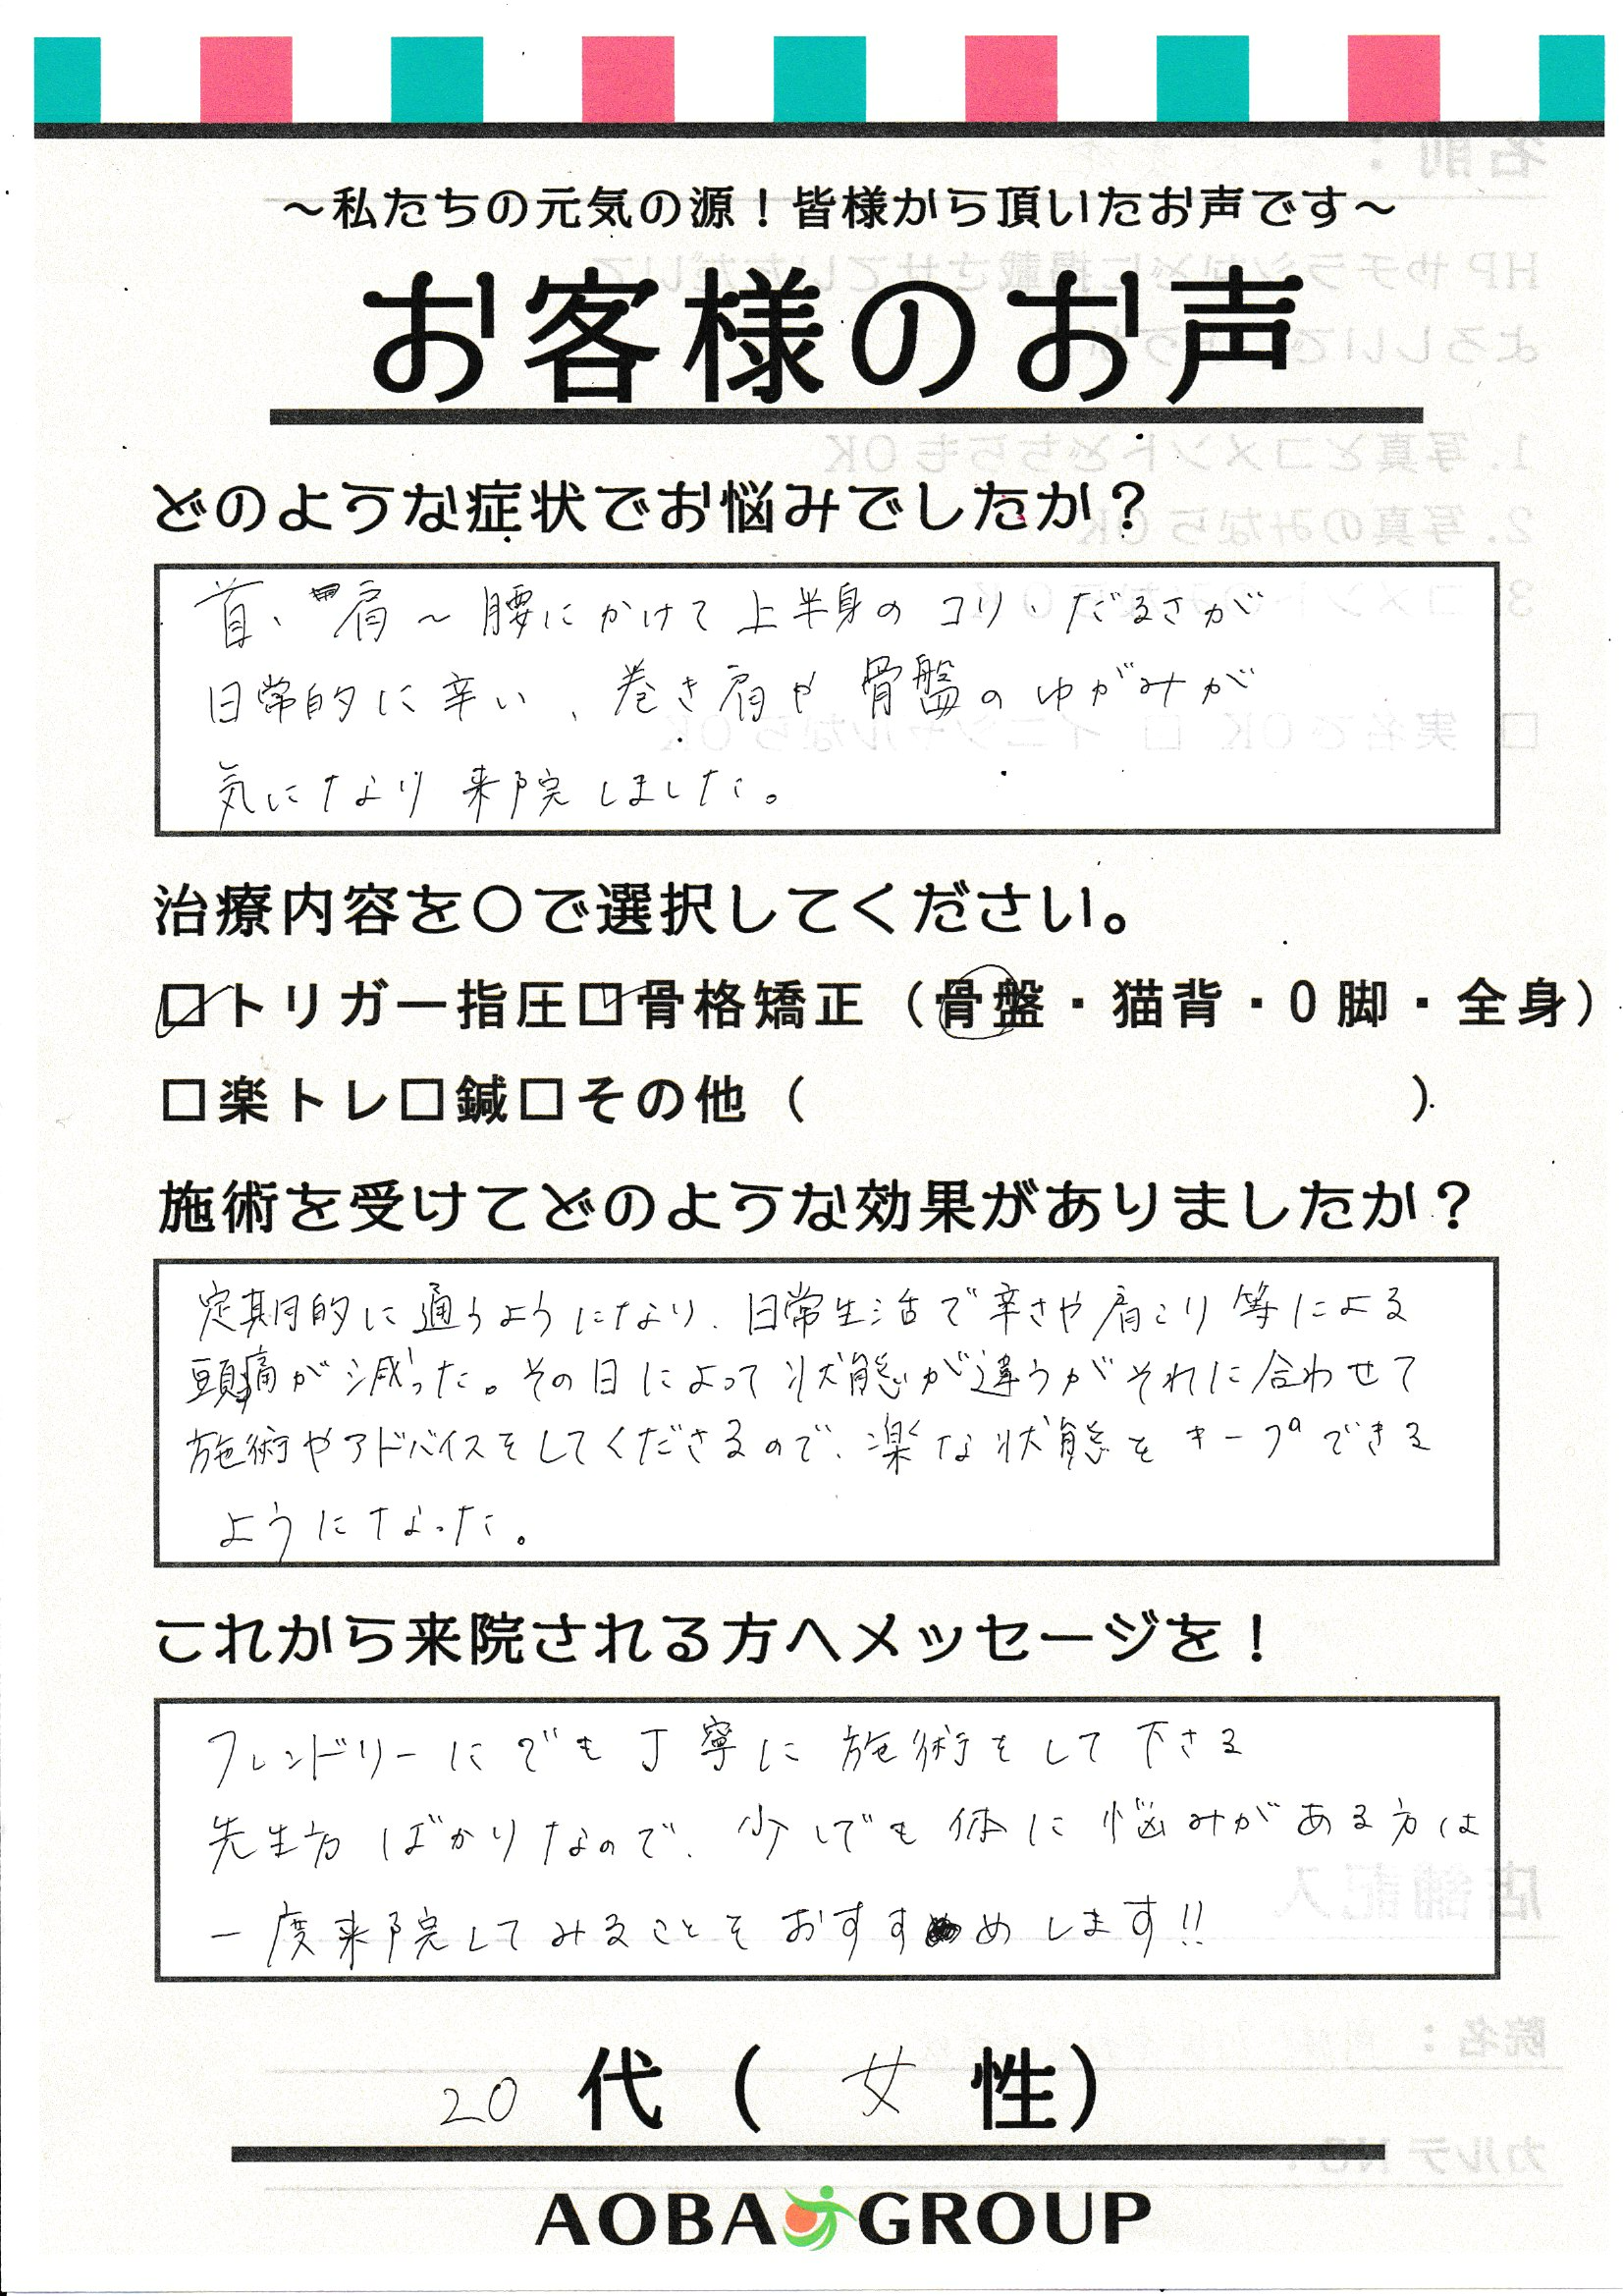 ～私たちの元気の源！皆様から頂いたお声です～
お客様のお声
どのような症状でお悩みでしたか？
首、肩～腰にかけて上半身のコリ、だるさが
日常的に辛い、巻き肩や骨盤のゆがみが
気になり来院しました。
治療内容を〇で選択してください。
☑トリガー指圧☑骨格矯正（骨盤・猫背・O脚・全身）
□楽トレ□鍼□その他（　　　　　）
施術を受けてどのような効果がありましたか？
定期的に通うようになり、日常生活で辛さや肩こり等による
頭痛が減った。その日によって状態が違うがそれに合わせて
施術やアドバイスをしてくださるので、楽な状態をキープできる
ようになった。
これから来院される方へメッセージを！
フレンドリーにでも丁寧に施術をして下さる
先生方ばかりなので、少しでも体に悩みがある方は
一度来院してみることをおすすめします!!
20代（女性）
AOBA GROUP